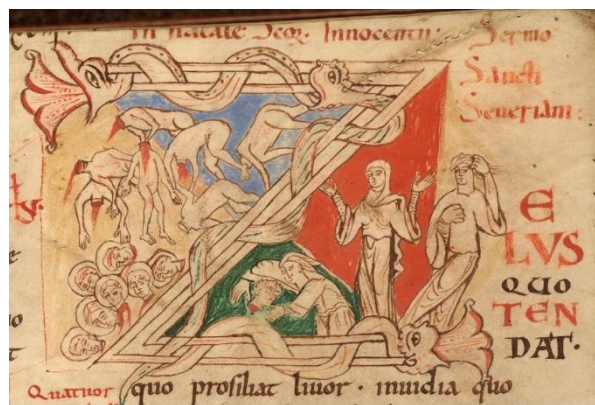 In natale Scoꝝ Innocentū. Sermo
Sancti
Seueriani:
Z
E
LVS
QUO
TEN
DAT.
Quatuor quo prosiliat liuor. inuidia quo